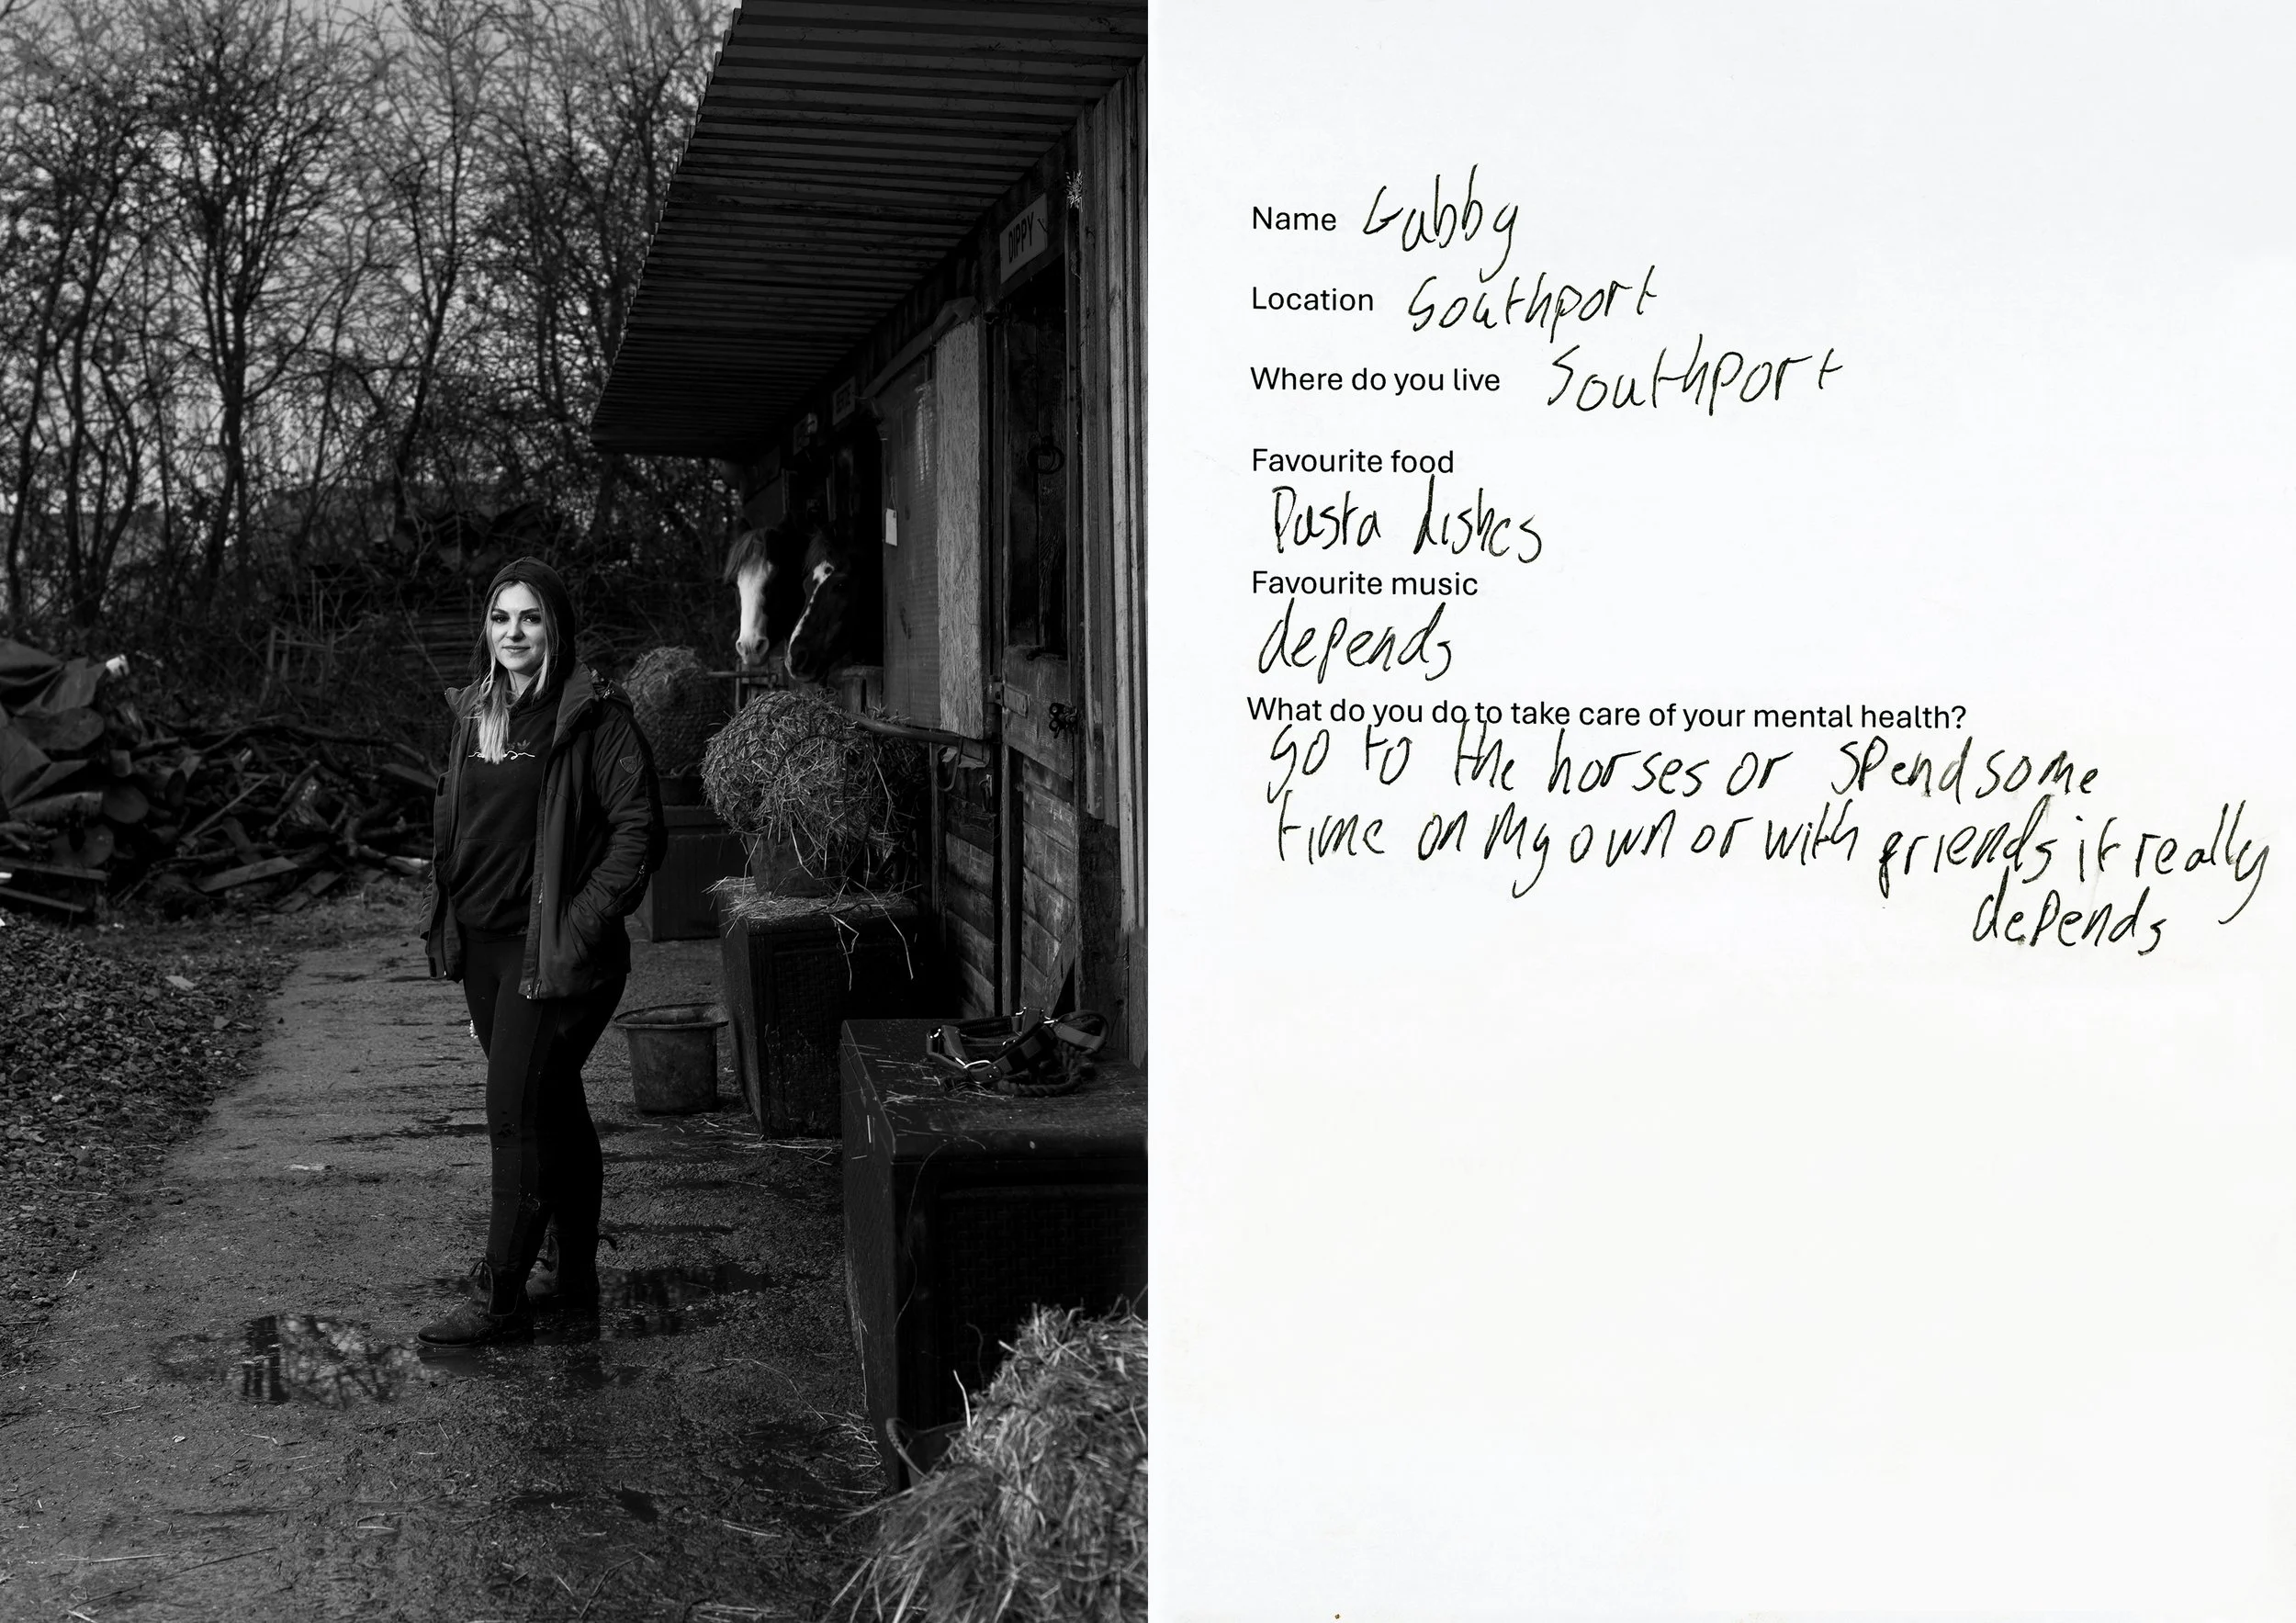 DIPPY
Name Gabby
Location Southport
Where do you live Southport
Favourite food
Pasta dishes
Favourite music
depends
What do you do to take care of your mental health?
go to the horses or spend some
time on my own or with friends it really
depends